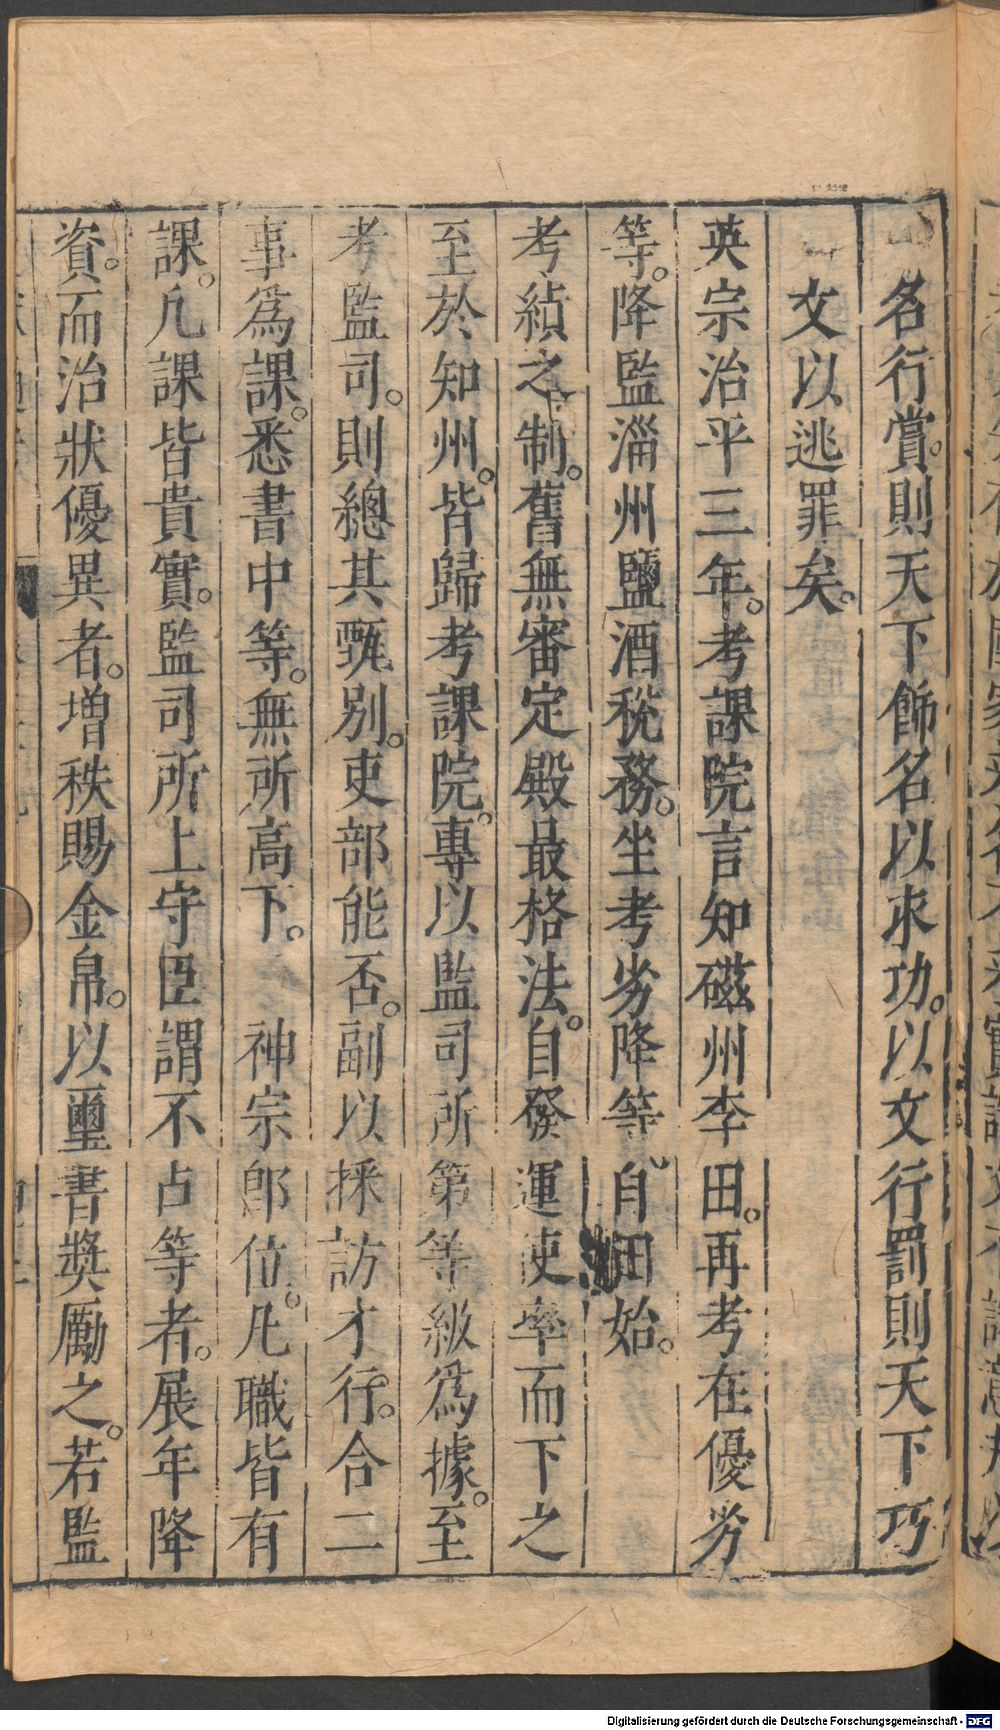 名行賞。則天下飾名以求功。以文行罰則天下巧
文以逃罪矣。
英宗治平三年。考課院言知磁州李田。再考在優劣
等。降監淄州鹽酒稅務。坐考劣降等自田始。
考績之制。舊無審定殿最格法。自發運使率而下之
至於知州。皆歸考課院。專以監司所第等級爲據。至
考監司。則總其甄別。吏部能否。副以採訪才行。合二
事爲課。悉書中等。無所高下。神宗郎位。凡職皆有
課。凡課皆貴實。監司所上守臣謂不占等者。展年降
資。而治狀優異者。增秩賜金帛。以璽書獎勵之。若監
Digitalisierung gefördert durch die Deutsche Forschungsgemeinschaft - DFG